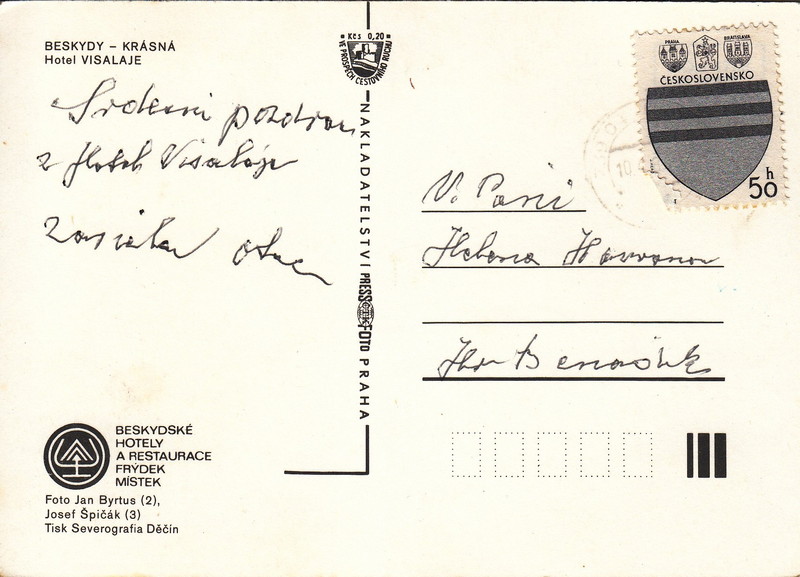 BESKYDY – KRÁSNÁ
Hotel VISALAJE
Srdečný pozdrav
z Hotelu Visalaje
zasiela otec
Kčs 0,20
VE PROSPĚCH CESTOVNÍHO RUCHU
NAKLADATELSTVÍ PRESSFOTO PRAHA
PRAHA
BRATISLAVA
ČESKOSLOVENSKO
50 h
10.
V. Pani
Helena
BESKYDSKÉ
HOTELY
A RESTAURACE
FRÝDEK
MÍSTEK
Foto Jan Byrtus (2),
Josef Špičák (3)
Tisk Severografia Děčín